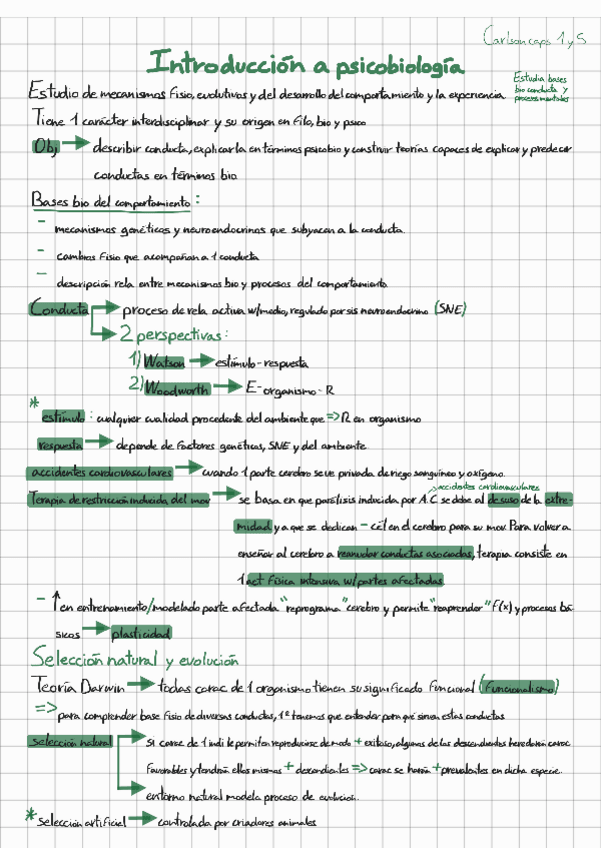 Carlson caps 1 y 5
Introducción a psicobiología
Estudia bases
bio conducta y
procesos mentales
Estudio de mecanismos fisio, evolutivos y del desarrollo del comportamiento y la experiencia
Tiene 1 carácter interdisciplinar y su origen en filo, bio y psico
Obj → describir conducta, explicarla en términos psicobio y construir teorías capaces de explicar y predecir
conductas en términos bio
Bases bio del comportamiento:
- mecanismos genéticos y neuroendocrinos que subyacen a la conducta
- cambios fisio que acompañan a 1 conducta
- descripción rela entre mecanismos bio y procesos del comportamiento
Conducta → proceso de rela activa w/medio, regulado por sis neuroendocrino (SNE)
→ 2 perspectivas:
1) Watson → estímulo - respuesta
2) Woodworth → E - organismo - R
* estímulo: cualquier cualidad procedente del ambiente que => R en organismo
respuesta → depende de factores genéticos, SNE y del ambiente
accidentes cardiovasculares → cuando 1 parte cerebro se ve privada de riego sanguíneo y oxígeno.
accidentes cardiovasculares
Terapia de restricción inducida del mov → se basa en que parálisis inducida por A.C se debe al desuso de la extre
midad y a que se dedican - cél en el cerebro para su mov. Para volver a
enseñar al cerebro a reanudar conductas asociadas, terapia consiste en
1 act física intensiva w/partes afectadas
- ↑ en entrenamiento/modelado parte afectada "reprograma" cerebro y permite "reaprender" f(x) y procesos bá-
sicos → plasticidad
Selección natural y evolución
Teoría Darwin → todas carac de 1 organismo tienen su significado funcional (funcionalismo)
=> para comprender base fisio de diversas conductas, 1º tenemos que entender para qué sirven estas conductas
selección natural → si carac de 1 indi le permiten reproducirse de modo + exitoso, algunos de los descendientes heredarán carac
favorables y tendrán ellos mismos + descendientes => carac se harán + prevalentes en dicha especie.
→ entorno natural modela proceso de evolución.
* selección artificial → controlada por criadores animales